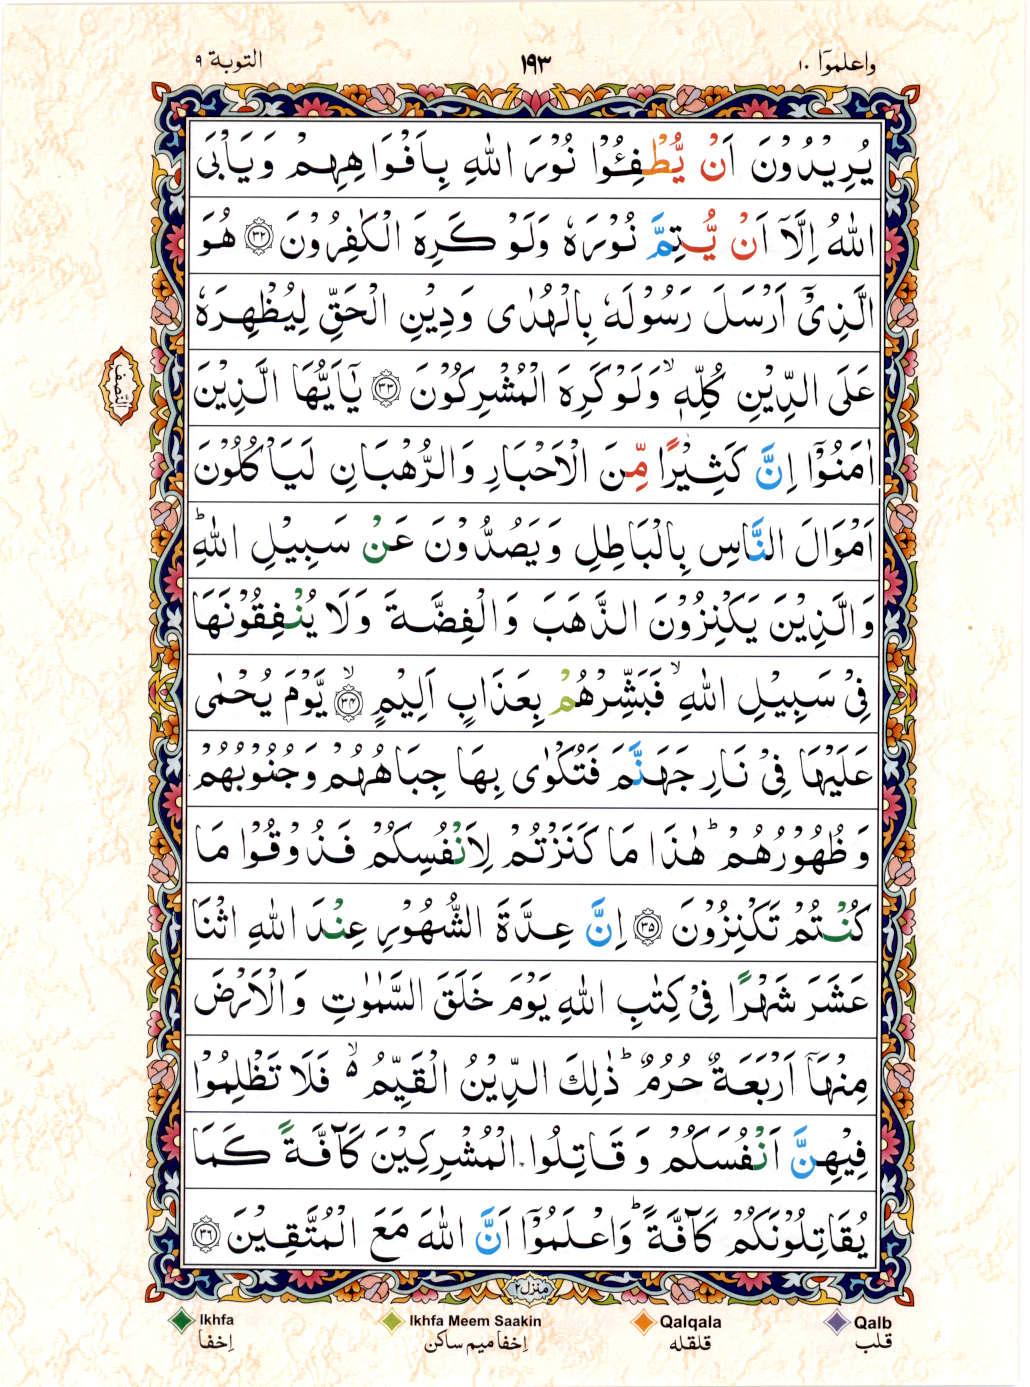 واعلموٓا ۱۰
۱۹۳
التوبة ۹
يُرِيْدُوْنَ اَنْ يُّطْفِـُٔوْا نُوْرَ اللّٰهِ بِاَفْوَاهِهِمْ وَيَاْبَى
اللّٰهُ اِلَّاۤ اَنْ يُّتِمَّ نُوْرَهٗ وَلَوْ كَرِهَ الْكٰفِرُوْنَ ۝۳۲ هُوَ
الَّذِىْۤ اَرْسَلَ رَسُوْلَهٗ بِالْهُدٰى وَدِيْنِ الْحَقِّ لِيُظْهِرَهٗ
عَلَى الدِّيْنِ كُلِّهٖۙ وَلَوْ كَرِهَ الْمُشْرِكُوْنَ ۝۳۳ يٰۤاَيُّهَا الَّذِيْنَ
النّصف
اٰمَنُوْۤا اِنَّ كَثِيْرًا مِّنَ الْاَحْبَارِ وَالرُّهْبَانِ لَيَاْكُلُوْنَ
اَمْوَالَ النَّاسِ بِالْبَاطِلِ وَيَصُدُّوْنَ عَنْ سَبِيْلِ اللّٰهِؕ
وَالَّذِيْنَ يَكْنِزُوْنَ الذَّهَبَ وَالْفِضَّةَ وَلَا يُنْفِقُوْنَهَا
فِىْ سَبِيْلِ اللّٰهِۙ فَبَشِّرْهُمْ بِعَذَابٍ اَلِيْمٍۙ ۝۳۴ يَّوْمَ يُحْمٰى
عَلَيْهَا فِىْ نَارِ جَهَنَّمَ فَتُكْوٰى بِهَا جِبَاهُهُمْ وَجُنُوْبُهُمْ
وَظُهُوْرُهُمْؕ هٰذَا مَا كَنَزْتُمْ لِاَنْفُسِكُمْ فَذُوْقُوْا مَا
كُنْتُمْ تَكْنِزُوْنَ ۝۳۵ اِنَّ عِدَّةَ الشُّهُوْرِ عِنْدَ اللّٰهِ اثْنَا
عَشَرَ شَهْرًا فِىْ كِتٰبِ اللّٰهِ يَوْمَ خَلَقَ السَّمٰوٰتِ وَالْاَرْضَ
مِنْهَاۤ اَرْبَعَةٌ حُرُمٌؕ ذٰلِكَ الدِّيْنُ الْقَيِّمُ ۙ۵ فَلَا تَظْلِمُوْا
فِيْهِنَّ اَنْفُسَكُمْ وَقَاتِلُوا الْمُشْرِكِيْنَ كَآفَّةً كَمَا
يُقَاتِلُوْنَكُمْ كَآفَّةًؕ وَاعْلَمُوْۤا اَنَّ اللّٰهَ مَعَ الْمُتَّقِيْنَ ۝۳۶
منزل ۲
Ikhfa
Ikhfa Meem Saakin
Qalqala
Qalb
اِخفا
اِخفا میم ساکن
قلقله
قلب